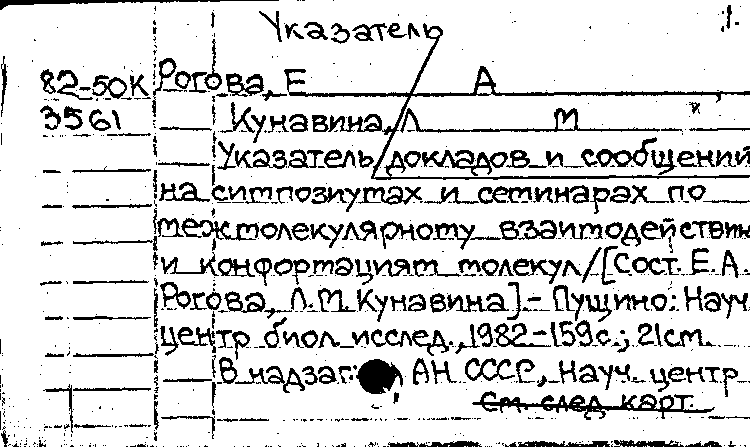 Указатель 1.
82-50К Рогова, Е А
3561 Кунавина, Л М и
Указатель докладов и сообщений
на симпозиумах и семинарах по
межмолекулярному взаимодействию
и конформациям молекул/[Сост. Е.А.
Рогова, Л.М. Кунавина].- Пущино: Науч.
центр биол. исслед., 1982-159с.; 21см.
В надзаг: АН СССР, Науч. центр
См. след. карт.